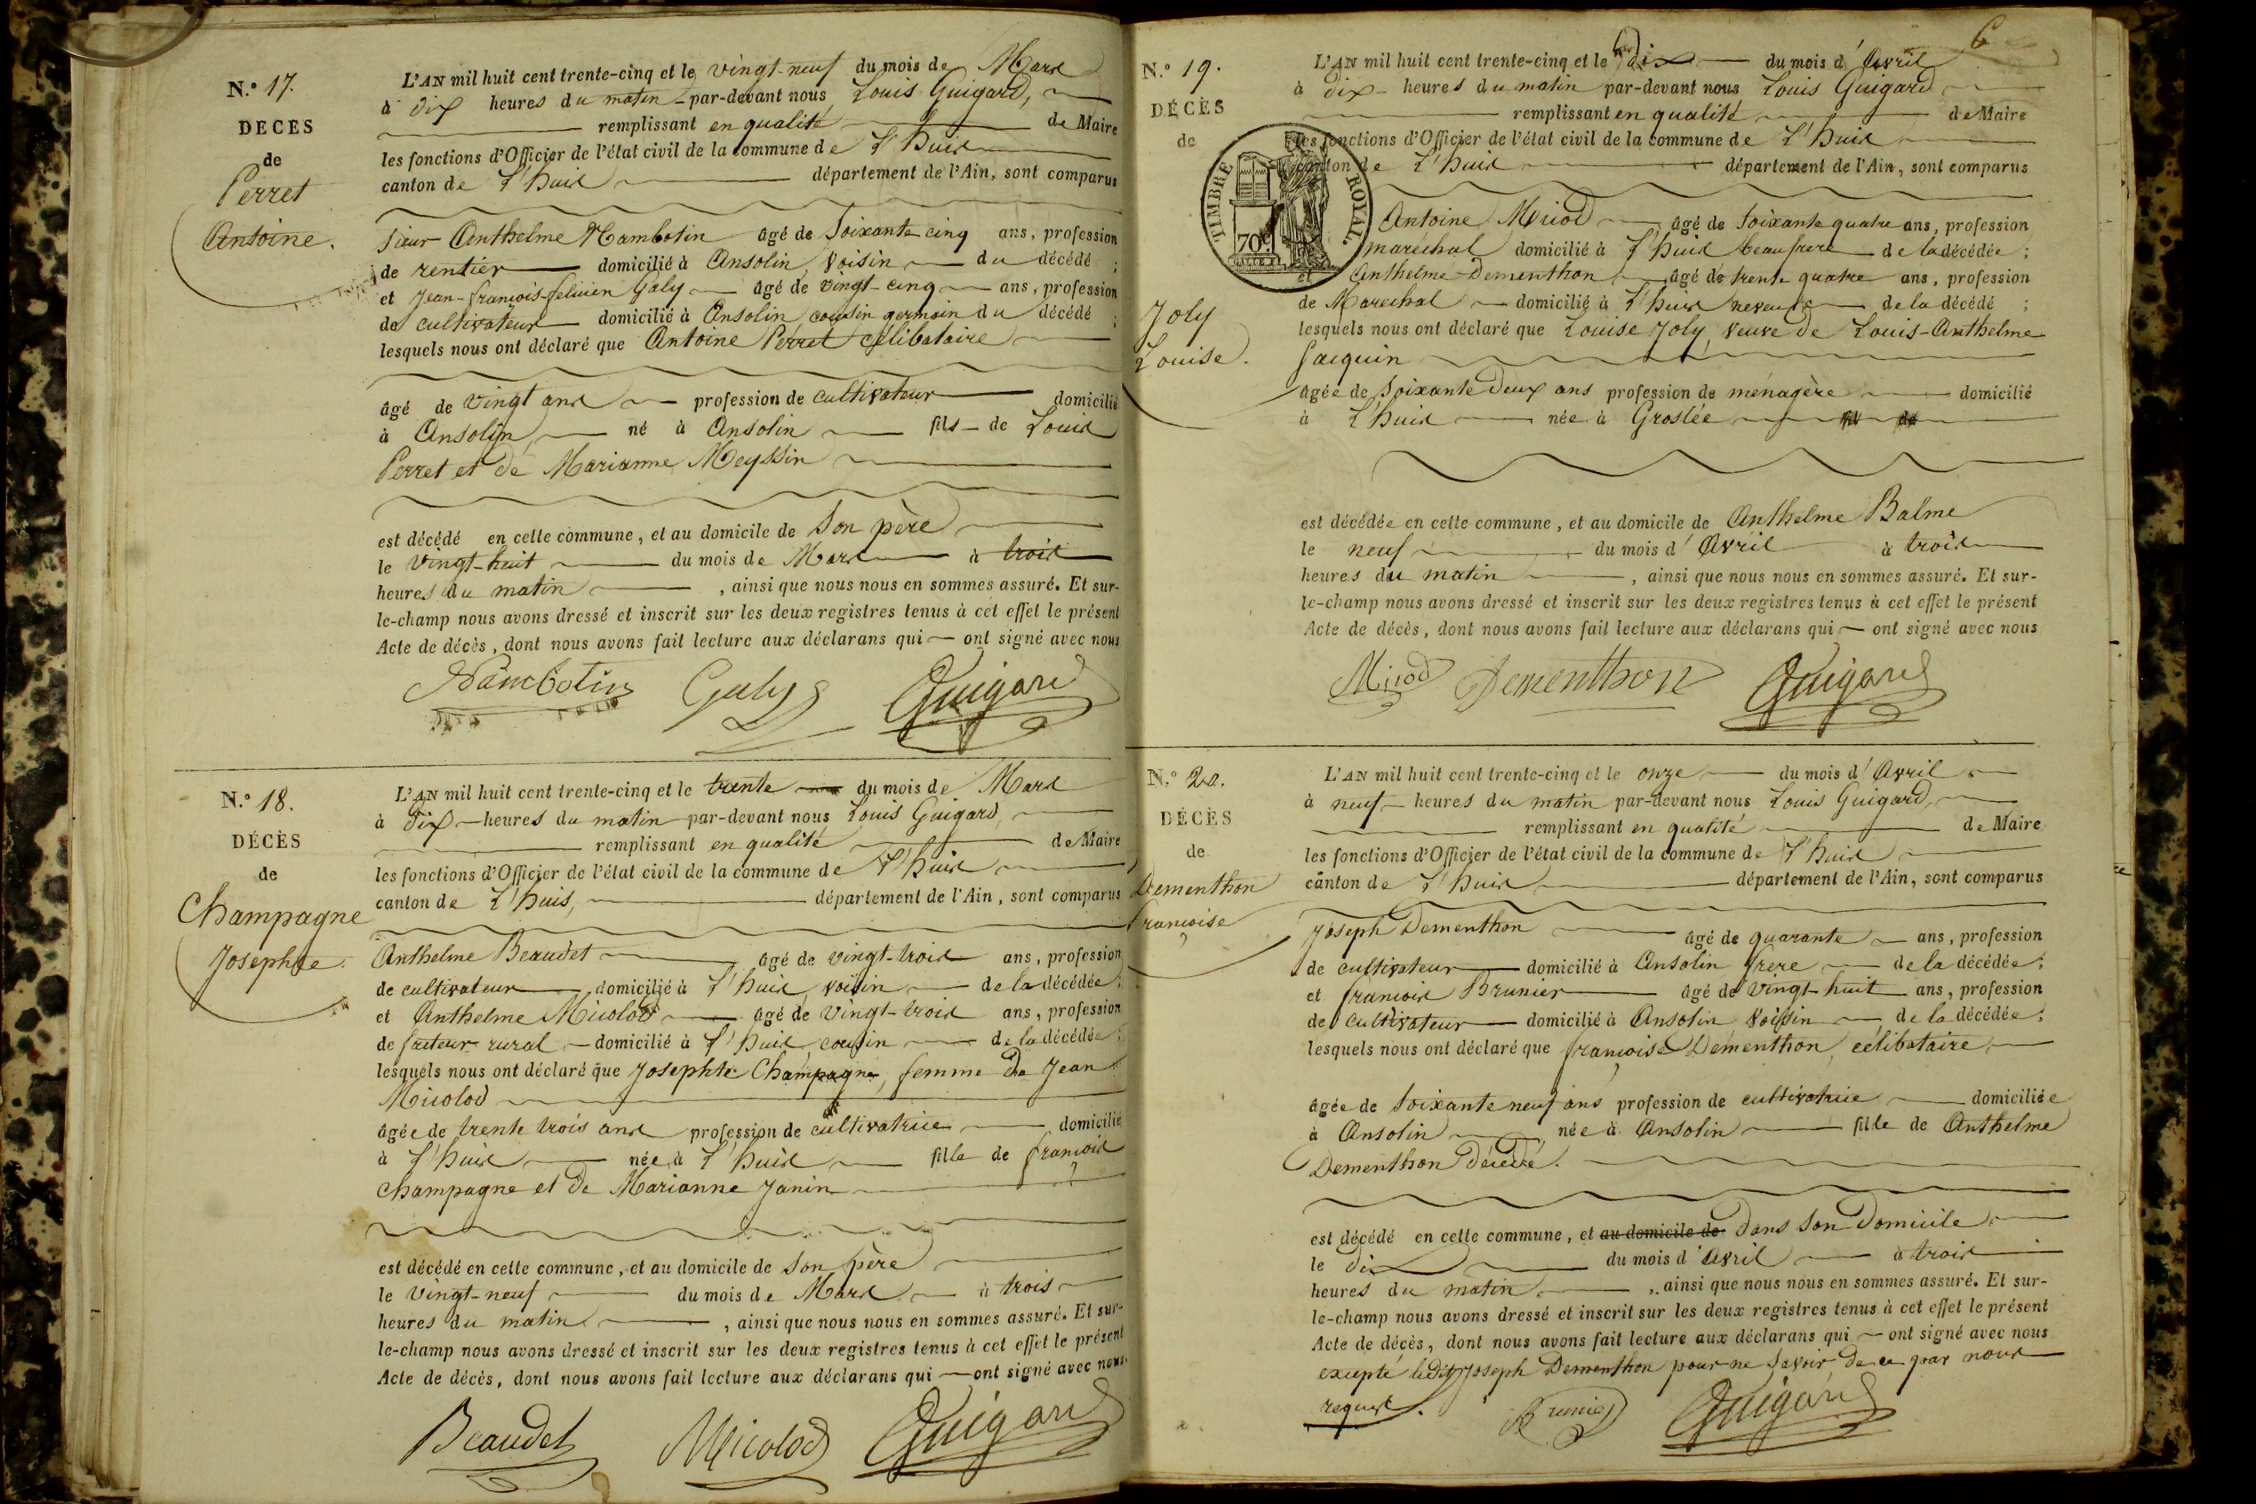 N.° 17.
DÉCÈS
de
Perret
Antoine.
L'AN mil huit cent trente-cinq et le vingt-neuf du mois de Mars
à dix heures du matin par-devant nous Louis Guigard,
remplissant en qualité de Maire
les fonctions d'Officier de l'état civil de la commune de L'huis
canton de L'huis département de l'Ain, sont comparus
Sieur Anthelme Nambotin âgé de Soixante cinq ans, profession
de rentier domicilié à Ansolin, voisin du décédé ;
et Jean-françois-felicien Galy âgé de vingt-cinq ans, profession
de cultivateur domicilié à Ansolin cousin germain du décédé ;
lesquels nous ont déclaré que Antoine Perret célibataire
âgé de vingt ans profession de cultivateur domicilié
à Ansolin, né à Ansolin fils de Louis
Perret et de Marianne Meyssin
est décédé en cette commune, et au domicile de Son père
le vingt-huit du mois de Mars à trois
heures du matin, ainsi que nous nous en sommes assuré. Et sur-
le-champ nous avons dressé et inscrit sur les deux registres tenus à cet effet le présent
Acte de décès, dont nous avons fait lecture aux déclarans qui ont signé avec nous
Nambotin Galy Guigard
N.° 18.
DÉCÈS
de
Champagne
Josephte.
L'AN mil huit cent trente-cinq et le trente du mois de Mars
à dix heures du matin par-devant nous Louis Guigard,
remplissant en qualité de Maire
les fonctions d'Officier de l'état civil de la commune de L'huis
canton de L'huis, département de l'Ain, sont comparus
Anthelme Beaudet âgé de vingt-trois ans, profession
de cultivateur domicilié à L'huis, voisin de la décédée ;
et Anthelme Micolod âgé de vingt-trois ans, profession
de facteur rural domicilié à L'huis cousin de la décédée ;
lesquels nous ont déclaré que Josephte Champagne, femme de Jean
Micolod
âgée de trente trois ans profession de cultivatrice domicilié
à L'huis née à L'huis fille de françois
Champagne et de Marianne Janin
est décédé en cette commune, et au domicile de Son père
le vingt-neuf du mois de Mars à trois
heures du matin, ainsi que nous nous en sommes assuré. Et sur-
le-champ nous avons dressé et inscrit sur les deux registres tenus à cet effet le présent
Acte de décès, dont nous avons fait lecture aux déclarans qui ont signé avec nous
Beaudet Micolod Guigard
6
N.° 19.
DÉCÈS
de
Joly
Louise.
TIMBRE ROYAL.
70c
L'AN mil huit cent trente-cinq et le dix du mois d'Avril
à dix heures du matin par-devant nous Louis Guigard
remplissant en qualité de Maire
les fonctions d'Officier de l'état civil de la commune de L'huis
canton de L'huis département de l'Ain, sont comparus
Antoine Miciod âgé de Soixante quatre ans, profession
maréchal domicilié à L'huis beaufrere de la décédée ;
et Anthelme Dementhon âgé de trente quatre ans, profession
de Marechal domicilié à L'huis neveu de la décédé ;
lesquels nous ont déclaré que Louise Joly, veuve de Louis-Anthelme
Jacquin
âgée de Soixante deux ans profession de ménagère domicilié
à L'huis née à Groslée
est décédée en cette commune, et au domicile de Anthelme Balme
le neuf du mois d'Avril à trois
heures du matin, ainsi que nous nous en sommes assuré. Et sur-
le-champ nous avons dressé et inscrit sur les deux registres tenus à cet effet le présent
Acte de décès, dont nous avons fait lecture aux déclarans qui ont signé avec nous
Dementhon Guigard
N.° 20.
DÉCÈS
de
Dementhon
françoise
L'AN mil huit cent trente-cinq et le onze du mois d'Avril
à neuf heures du matin par-devant nous Louis Guigard,
remplissant en qualité de Maire
les fonctions d'Officier de l'état civil de la commune de L'huis
canton de L'huis département de l'Ain, sont comparus
Joseph Dementhon âgé de quarante ans, profession
de cultivateur domicilié à Ansolin frere de la décédée ;
et françois Brunier âgé de vingt-huit ans, profession
de cultivateur domicilié à Ansolin voisin de la décédée ;
lesquels nous ont déclaré que françoise Dementhon, célibataire,
âgée de Soixante neuf ans profession de cultivatrice domiciliée
à Ansolin née à Ansolin fille de Anthelme
Dementhon décédé.
est décédé en cette commune, et au domicile de dans Son Domicile
le dix du mois d'Avril à trois
heures du matin, ainsi que nous nous en sommes assuré. Et sur-
le-champ nous avons dressé et inscrit sur les deux registres tenus à cet effet le présent
Acte de décès, dont nous avons fait lecture aux déclarans qui ont signé avec nous
excepté ledit Joseph Dementhon pour ne Savoir de ce par nous
requis.
Brunier Guigard